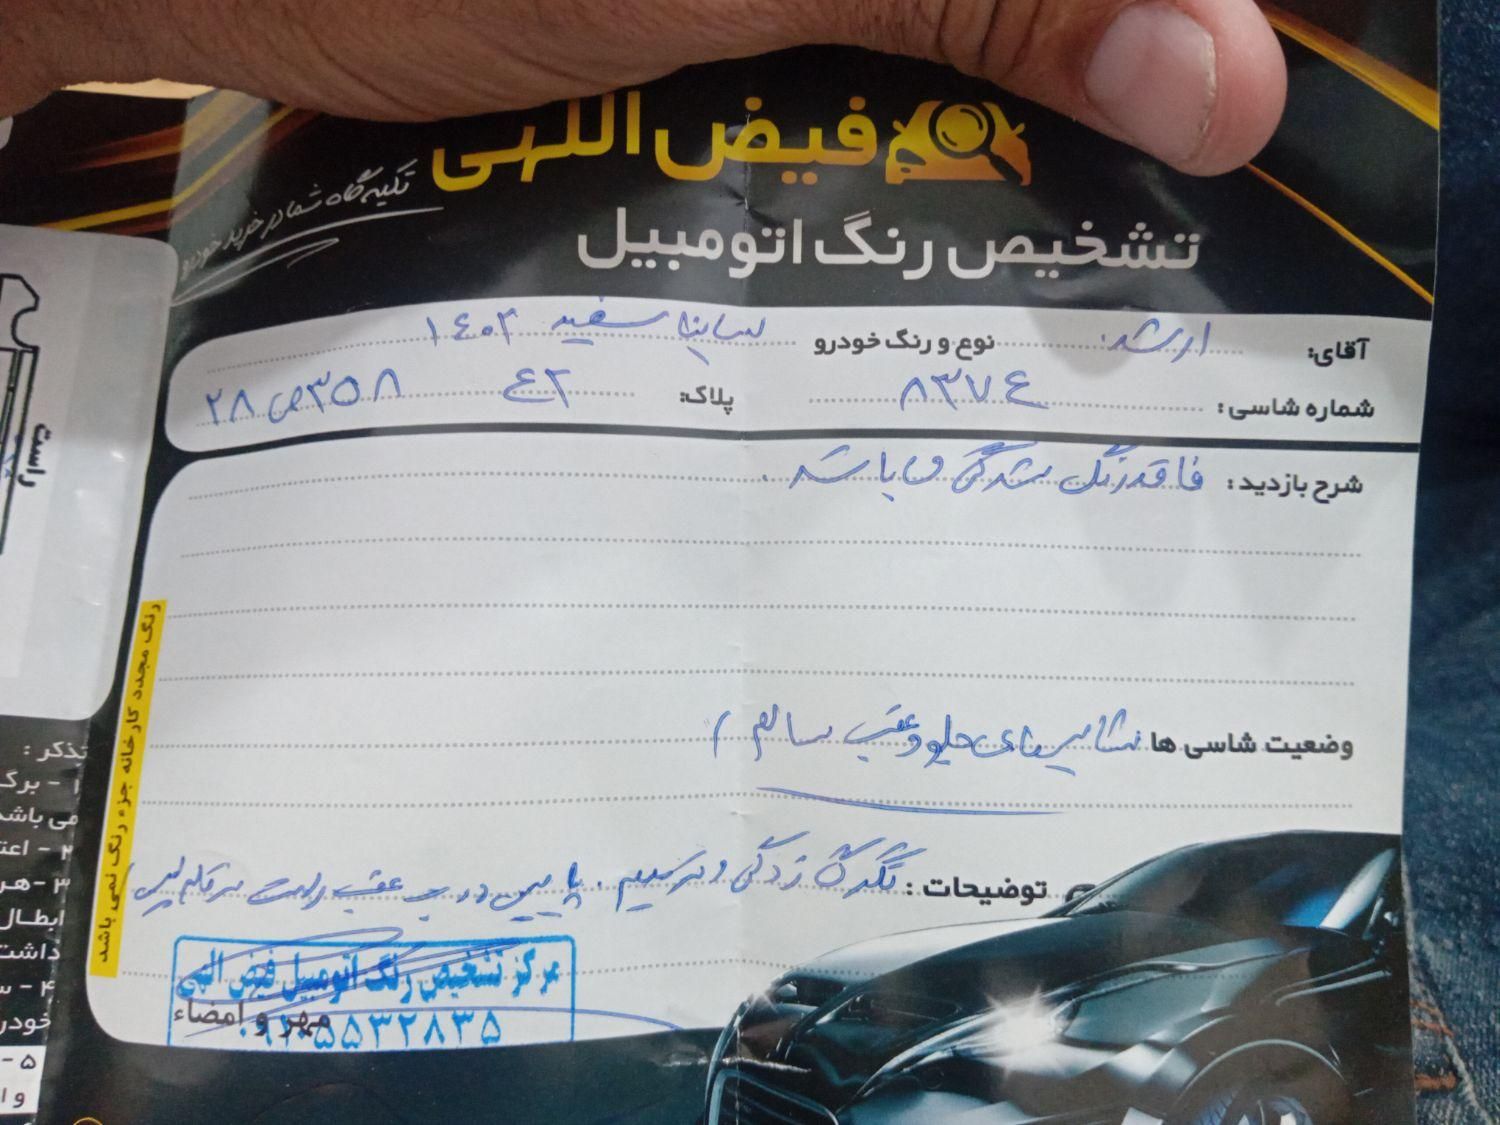 فیض اللهی
تکیه گاه شما در خرید خودرو
تشخیص رنگ اتومبیل
آقای: ارشد نوع و رنگ خودرو ساینا سفید ۱۴۰۳
شماره شاسی: ۸۳۷۴ پلاک: ۲۴ ۳۵۸ ص ۲۸
شرح بازدید: فاقد رنگ شدگی می باشد.
وضعیت شاسی ها شاسیهای جلو و عقب سالم
توضیحات: تگرگ زدگی و ترمیم. پایین درب عقب راست
مرکز تشخیص رنگ اتومبیل فیض الهی
مهر و امضاء
رنگ مجدد کارخانه جزء رنگ نمی باشد
راست
تذکر:
۱- برگ
می باشد
۲- اعت
۳- هر
ابطال
داشت
۴- س
خودر
۵-
و ا